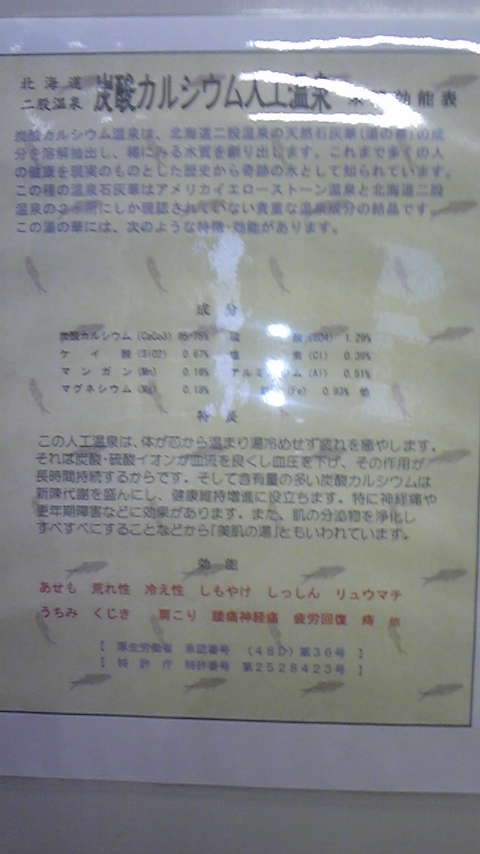 北海道
二股温泉 炭酸カルシウム人工温泉 効能表
炭酸カルシウム温泉は、北海道二股温泉の天然石灰華(湯の華)の成
分を溶解抽出し、稀にみる水質を創り出します。これまで多くの人
の健康を現実のものとした歴史から奇跡の水として知られています。
この種の温泉石灰華はアメリカイエローストーン温泉と北海道二股
温泉の2ヶ所にしか現認されていない貴重な温泉成分の結晶です。
この湯の華には、次のような特徴・効能があります。
成 分
炭酸カルシウム (CaCo3) 95.76% 硫 酸 (SO4) 1.29%
ケ イ 酸 (SiO2) 0.67% 塩 素 (Cl) 0.39%
マ ン ガ ン (Mn) 0.16% アルミニウム (Al) 0.51%
マグネシウム (Mg) 0.18% 鉄 (Fe) 0.93% 他
特 長
この人工温泉は、体が芯から温まり湯冷めせず疲れを癒やします。
それは炭酸・硫酸イオンが血流を良くし血圧を下げ、その作用が
長時間持続するからです。そして含有量の多い炭酸カルシウムは
新陳代謝を盛んにし、健康維持増進に役立ちます。特に神経痛や
更年期障害などに効果があります。また、肌の分泌物を浄化し
すべすべにすることなどから「美肌の湯」ともいわれています。
効 能
あせも 荒れ性 冷え性 しもやけ しっしん リュウマチ
うちみ くじき 肩こり 腰痛神経痛 疲労回復 痔 他
【 厚生労働省 承認番号 (48D)第36号 】
【 特許庁 特許番号 第2528423号 】